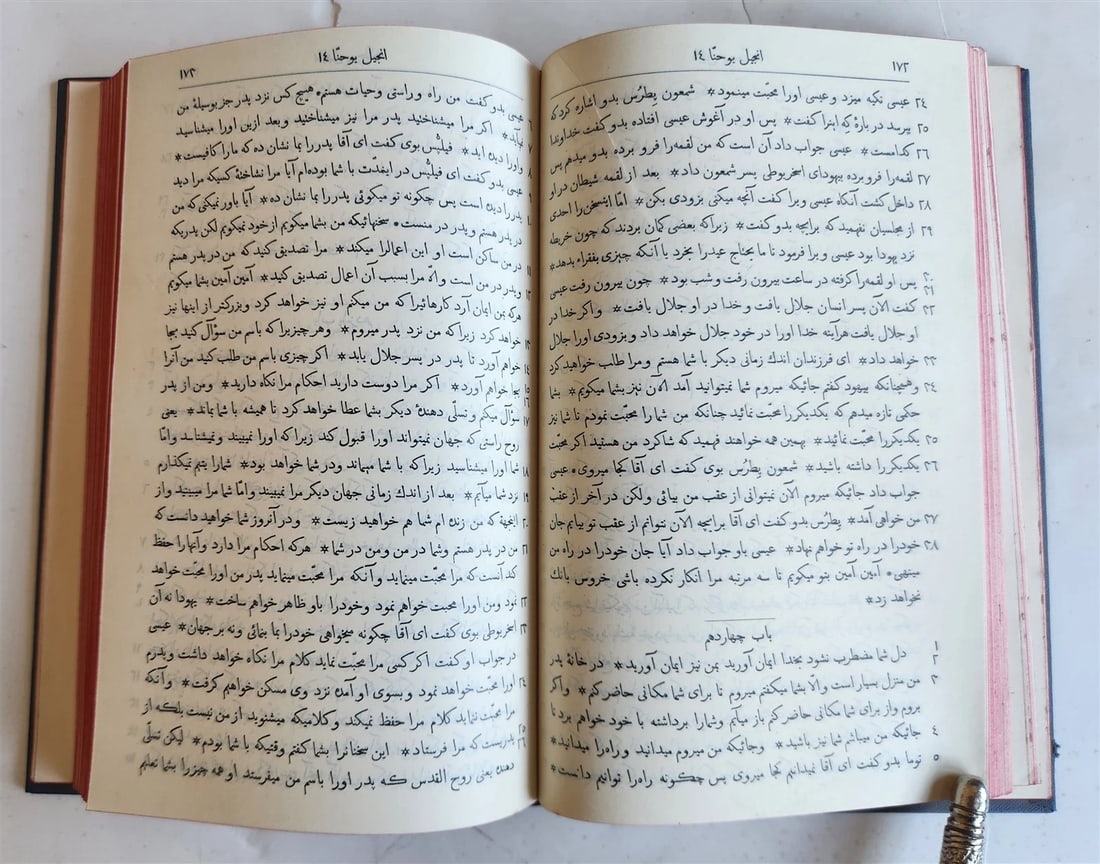 ۱۷۲
انجیل یوحنّا ۱٤
۲٤ عیسی تکیه میزد و عیسی اورا محبّت مینمود* شمعون پِطرُس بدو اشاره کرد که
۲۵ بپرسد در بارۀ که اینرا گفت* پس او در آغوش عیسی افتاده بدو گفت خداوندا
۲٦ کدامست* عیسی جواب داد آن است که من لقمه‌را فرو برده بدو میدهم پس
۲۷ لقمه‌را فرو برده بیهودای اسخریوطی پسر شمعون داد* بعد از لقمه شیطان در او
۲۸ داخل گشت آنگاه عیسی ویرا گفت آنچه میکنی بزودی بکن* امّا اینسخن‌را احدی
۲۹ از مجلسیان نفهمید که برایچه بدو گفت* زیراکه بعضی کمان بردند که چون خریطه
نزد یهودا بود عیسی ویرا فرمود تا ما یحتاج عیدرا بخرد یا آنکه چیزی بفقراء بدهد*
۳۰ ۳۱ پس او لقمه‌را گرفته در ساعت بیرون رفت و شب بود* چون بیرون رفت عیسی
۳۲ گفت الآن پسر انسان جلال یافت و خدا در او جلال یافت* و اگر خدا در
او جلال یافت هرآینه خدا اورا در خود جلال خواهد داد و بزودی اورا جلال
۳۳ خواهد داد* ای فرزندان اندك زمانی دیگر با شما هستم و مرا طلب خواهید کرد
۳٤ و همچنانکه بیهود گفتم جائیکه میروم شما نمیتوانید آمد الآن نیز بشما میگویم* بشما
حکمی تازه میدهم که یکدیگررا محبّت نمائید چنانکه من شما را محبّت نمودم تا شما نیز
۳۵ یکدیگررا محبّت نمائید* بهمین همه خواهند فهمید که شاکرد من هستید اکر محبّت
۳٦ یکدیگررا داشته باشید* شمعون پِطرُس بوی گفت ای آقا کجا میروی* عیسی
جواب داد جائیکه میروم الآن نمیتوانی از عقب من بیائی ولکن در آخر از عقب
۳۷ من خواهی آمد* پِطرُس بدو گفت ای آقا برایچه الآن نتوانم از عقب تو بیایم جان
۳۸ خودرا در راه تو خواهم نهاد* عیسی باو جواب داد آیا جان خودرا در راه من
مینهی* آمین آمین بتو میگویم تا سه مرتبه مرا انکار نکرده باشی خروس بانك
نخواهد زد*
باب چهاردهم
۱ ۲ دل شما مضطرب نشود بخدا ایمان آورید بمن نیز ایمان آورید* در خانۀ پدر
۳ من منزل بسیار است والّا بشما میگفتم میروم تا برای شما مکانی حاضر کنم* و اگر
بروم و از برای شما مکانی حاضر کنم باز میآیم و شمارا برداشته با خود خواهم برد تا
٤ جائیکه من میباشم شما نیز باشید* و جائیکه من میروم میدانید و راه‌را میدانید*
۵ توما بدو گفت ای آقا نمیدانیم کجا میروی پس چگونه راه‌را توانیم دانست*
انجیل یوحنّا ۱٤
۱۷۳
٦ عیسی بدو گفت من راه و راستی و حیات هستم* هیچ کس نزد پدر جز بوسیلۀ من
۷ نمیآید* اکر مرا میشناختید پدر مرا نیز میشناختید و بعد ازین اورا میشناسید
۸ و اورا دیده اید* فیلپُس بوی گفت ای آقا پدررا بما نشان ده که مارا کافیست*
۹ عیسی بدو گفت ای فیلپُس در اینمدّت با شما بوده‌ام آیا مرا نشناختۀ کسیکه مرا دید
۱۰ پدررا دیده است پس چگونه تو میگوئی پدررا بما نشان ده* آیا باور نمیکنی که من
در پدر هستم و پدر در منست* سخنهائیکه من بشما میگویم از خود نمیگویم لکن پدریکه
۱۱ در من ساکن است او این اعمالرا میکند* مرا تصدیق کنید که من در پدر هستم
۱۲ و پدر در من است والّا مرا بسبب آن اعمال تصدیق کنید* آمین آمین بشما میگویم
هرکه بمن ایمان آرد کارهائیرا که من میکنم او نیز خواهد کرد و بزرگتر از اینها نیز
۱۳ خواهد کرد زیرا که من نزد پدر میروم* و هر چیزیرا که باسم من سؤآل کنید بجا
۱٤ خواهم آورد تا پدر در پسر جلال یابد* اکر چیزی باسم من طلب کنید من آنرا
۱۵ ۱٦ بجا خواهم آورد* اکر مرا دوست دارید احکام مرا نکاه دارید* و من از پدر
۱۷ سؤآل میکنم و تسلّی دهندۀ دیگر بشما عطا خواهد کرد تا همیشه با شما بماند* یعنی
روح راستی که جهان نمیتواند اورا قبول کند زیرا که اورا نمیبیند و نمیشناسد و امّا
۱۸ شما اورا میشناسید زیرا که با شما میماند و در شما خواهد بود* شمارا یتیم نمیگذارم
۱۹ نزد شما میآیم* بعد از اندك زمانی جهان دیگر مرا نمیبیند و امّا شما مرا میبینید و از
۲۰ اینجهة که من زنده ام شما هم خواهید زیست* و در آنروز شما خواهید دانست که
۲۱ من در پدر هستم و شما در من و من در شما* هرکه احکام مرا دارد و آنهارا حفظ
کند آنست که مرا محبّت مینماید و آنکه مرا محبّت مینماید پدر من اورا محبّت خواهد
۲۲ نمود و من اورا محبت خواهم نمود و خودرا باو ظاهر خواهم ساخت* یهودا نه آن
۲۳ اسخریوطی بوی گفت ای آقا چگونه میخواهی خودرا بما بنمائی و نه بر جهان* عیسی
در جواب او گفت اکر کسی مرا محبّت نماید کلام مرا نکاه خواهد داشت و پدرم
۲٤ اورا محبّت خواهد نمود و بسوی او آمده نزد وی مسکن خواهیم گرفت* و آنکه
مرا محبّت ننماید کلام مرا حفظ نمیکند و کلامیکه میشنوید از من نیست بلکه از
۲۵ ۲٦ پدریست که مرا فرستاد* این سخنانرا بشما گفتم وقتیکه با شما بودم* لیکن تسلّی
دهنده یعنی روح القدس که پدر اورا باسم من میفرستد او همه چیزرا بشما تعلیم